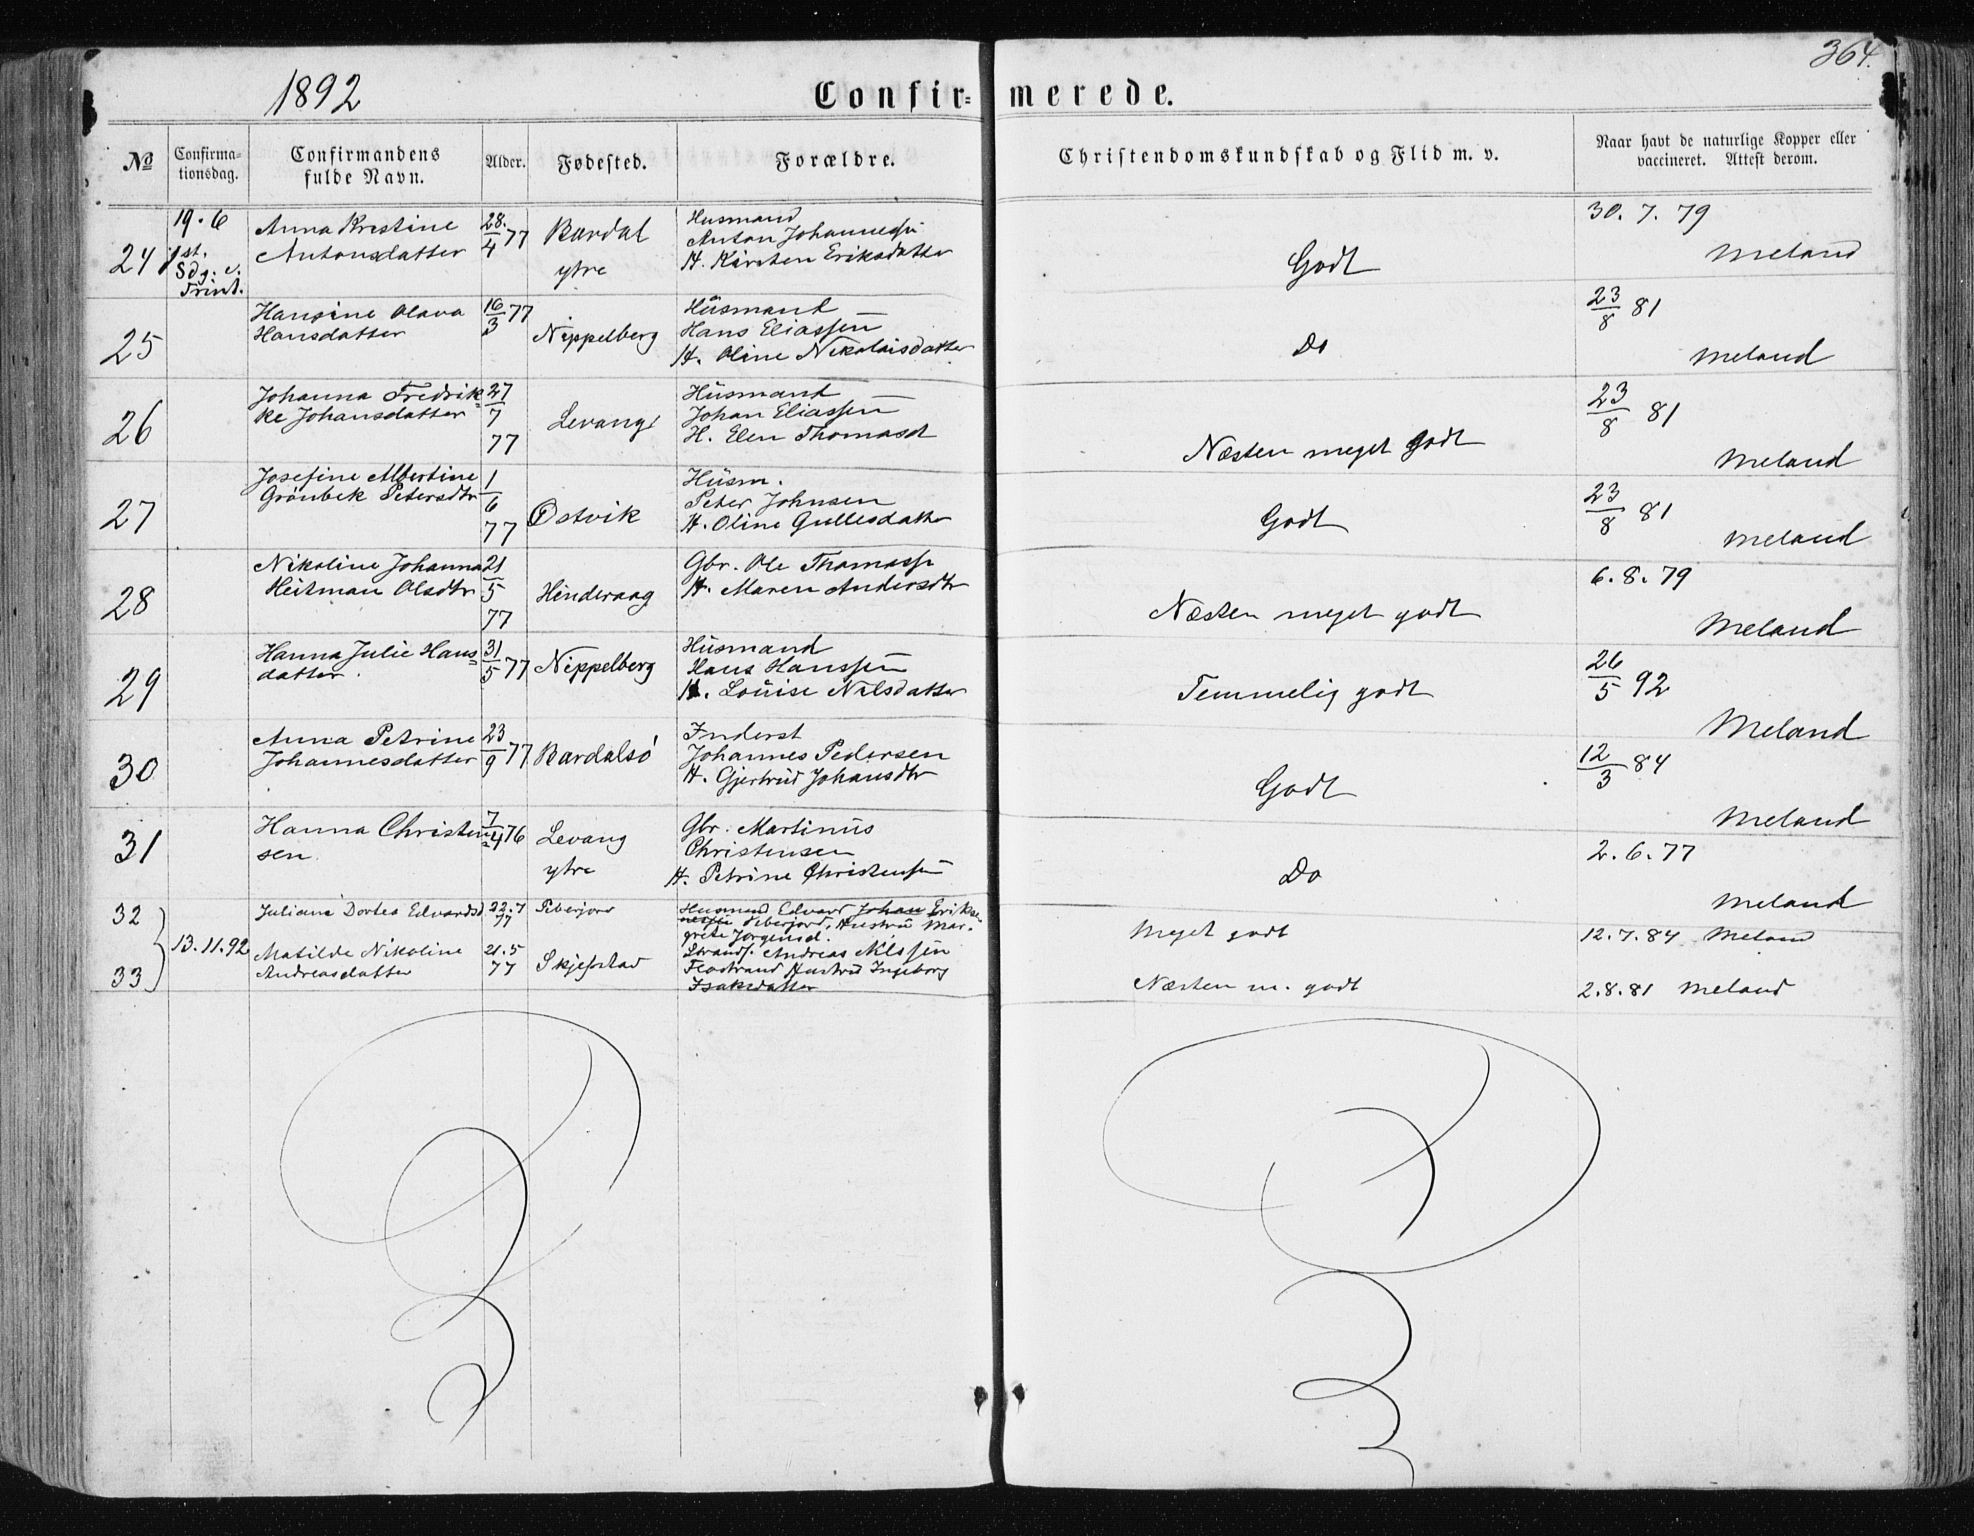 364.
1892
Confir= merede.
No
Confirma-
tionsdag.
Confirmandens
fulde Navn.
Alder.
Fødested.
Forældre.
Christendomskundskab og Flid m. v.
Naar havt de naturlige Kopper eller
vaccineret. Attest derom.
24
19. 6
1st.
Sdg. e.
Trint.
Anna Kristine
Antonsdatter
28.
4 77
Bardal
ytre
Husmand
Anton Johannessen
H. Kirsten Eriksdatter
Godt
30. 7. 79
Meland
25
Hansine Olava
Hansdatter
16
3 77
Nippelberg
Husmand
Hans Eliassen
H. Oline Nikolaisdatter
Do
23
8 81
Meland
26
Johanna Fredrik=
ke Johansdatter
27
7
77
Levang
Husmand
Johan Eliassen
H. Elen Thomasd
Næsten meget godt
23
8 81
Meland
27
Josefine Albertine
Grönbek Petersdtr
1
6
77
Østvik
Husm.
Peter Johnsen
H. Oline Gullesdatter
Godt
23
8 81
Meland
28
Nikoline Johanna
Heitman Olsdtr
21
5
77
Hinderaag
Gbr. Ole Thomass.
H. Maren Andersdtr
Næsten meget godt
6. 8. 79
Meland
29
Hanna Julie Hans=
datter.
31
5 77
Nippelberg
Husmand
Hans Hanssen
H. Louise Nilsdatter
Temmelig godt
26
5 92
Meland
30
Anna Petrine
Johannesdatter
23
9 77
Bardalsö
Inderst
Johannes Pedersen
H. Gjertrud Johansdtr
Godt
12
3 84
Meland
31
Hanna Christen
sen
7
4 76
Levang
ytre
Gbr. Martinus
Christensen
H. Petrine Christensen
Do
2. 6. 77
Meland
32
13. 11. 92
Juliana Dortea Edvardsd
22. 7
77
Peberjord
Husmand Edvard Johan Erikse
Peberjord, Hustru Mar-
grete Jörgensd.
Meget godt
12. 7. 84 Meland
33
Matilde Nikoline
Andreasdatter
21. 5
77
Skjefstad
Strands. Andreas Nilssen
Hustru Ingeborg
Isaksdatter
Næsten m. godt
2. 8. 81 Meland